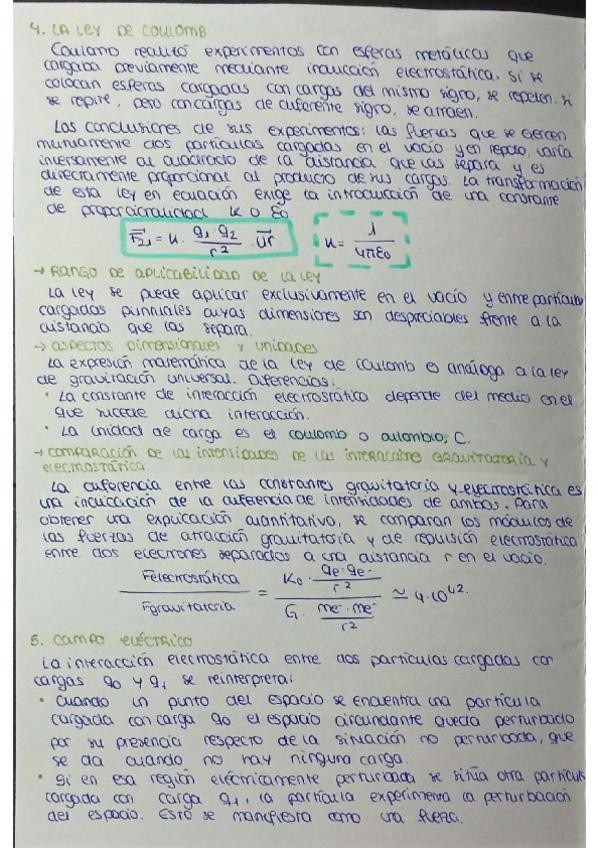 4. LA LEY DE COULOMB
Coulomb realizó experimentos con esferas metálicas que
cargaba previamente mediante inducción electrostática. Si se
colocan esferas cargadas con cargas del mismo signo, se repelen. Si
se repite, pero con cargas de diferente signo, se atraen.
Las conclusiones de sus experimentos: las fuerzas que se ejercen
mutuamente dos partículas cargadas en el vacío y en reposo, varía
inversamente al cuadrado de la distancia que las separa y es
directamente proporcional al producto de sus cargas. La transformación
de esta ley en ecuación exige la introducción de una constante
de proporcionalidad K o ε0.
F⃗2,1 = K · q1 · q2 / r² · u⃗r K = 1 / 4πε0
→ RANGO DE APLICABILIDAD DE LA LEY
La ley se puede aplicar exclusivamente en el vacío y entre partículas
cargadas puntuales cuyas dimensiones son despreciables frente a la
distancia que las separa.
→ ASPECTOS DIMENSIONALES Y UNIDADES
La expresión matemática de la ley de Coulomb es análoga a la ley
de gravitación universal. Diferencias:
• La constante de interacción electrostática depende del medio en el
que sucede dicha interacción.
• La unidad de carga es el coulomb o culombio, C.
→ COMPARACIÓN DE LAS INTENSIDADES DE LAS INTERACCIONES GRAVITATORIA Y
ELECTROSTÁTICA
La diferencia entre las constantes gravitatoria y electrostática es
una indicación de la diferencia de intensidades de ambas. Para
obtener una explicación cuantitativo, se comparan los módulos de
las fuerzas de atracción gravitatoria y de repulsión electrostática
entre dos electrones separados a una distancia r en el vacío.
Felectrostática / Fgravitatoria = (K0 · qe- · qe- / r²) / (G · me- · me- / r²) ≃ 4·10⁴².
5. CAMPO ELÉCTRICO
La interacción electrostática entre dos partículas cargadas con
cargas q0 y q1 se reinterpreta:
• Cuando un punto del espacio se encuentra una partícula
cargada con carga q0 el espacio circundante queda perturbado
por su presencia respecto de la situación no perturbada, que
se da cuando no hay ninguna carga.
• Si en esa región eléctricamente perturbada se sitúa otra partícula
cargada con carga q1, la partícula experimenta la perturbación
del espacio. Esto se manifiesta como una fuerza.